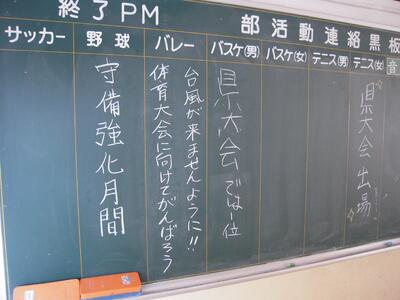 終了PM
部活動連絡黒板
サッカー
野球
バレー
バスケ(男)
バスケ(女)
テニス(男)
テニス(女)
音
守備強化月間
台風が来ませんように!!
体育大会に向けてがんばろう
県大会では一位
県大会出場